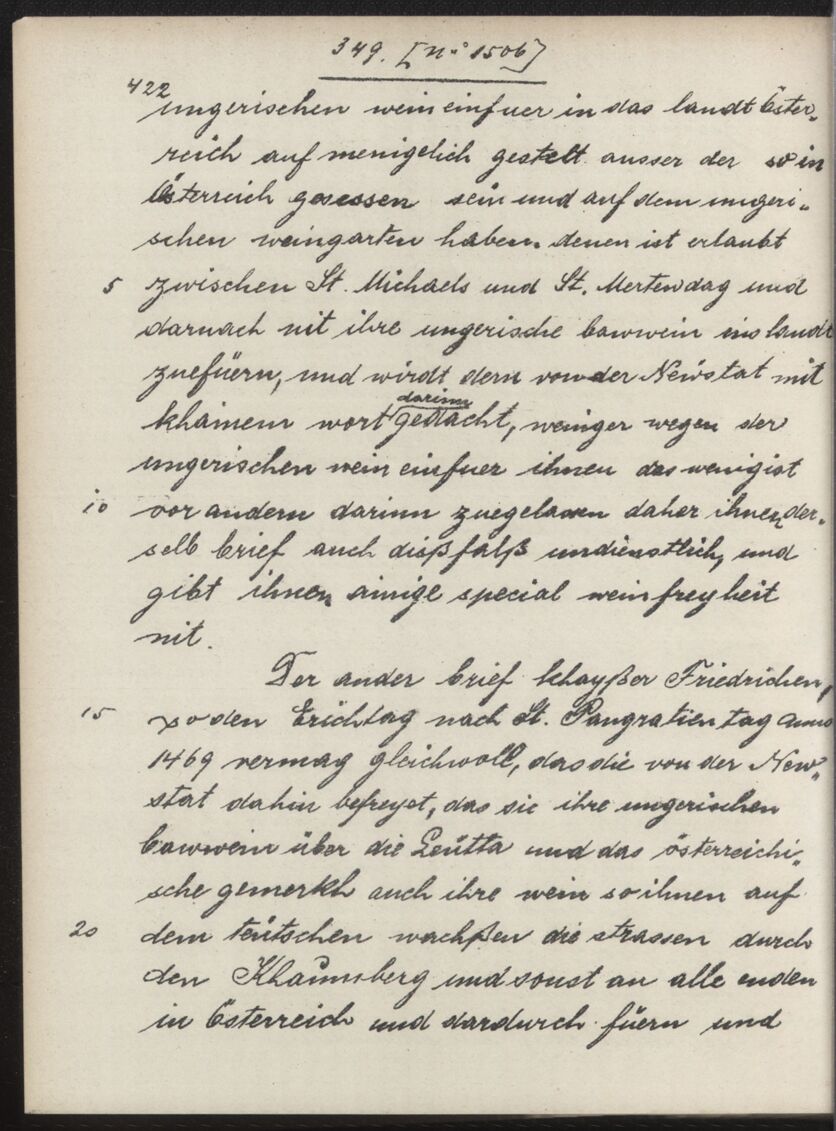 349. [n° 1506]
422
ungerischen wein einfuer in das landt Öster„
reich auf menigelich gestelt ausser der so in
Österreich gesessen sein und auf dem ungeri„
schen weingarten haben, denen ist erlaubt
5 zwischen St. Michaels und St. Mertendag und
darnach nit ihre ungerische bawwein ins landt
zuefüern, und wirdt dern von der Newstat mit
khainem wort darinn gedacht, weniger wegen der
ungerischen wein einfuer ihnen das wenigist
10 vor andern darinn zuegelassen daher ihnen der„
selb brief auch dißfalß undienstlich, und
gibt ihnen ainige special weinfreyheit
nit.
Der ander brief khayßer Friedrichen,
15 so den Erichtag nach St. Pangratien tag anno
1469 vermag gleichwoll, das die von der New„
stat dahin befreyet, das sie ihre ungerischen
bawwein über die Leütta und das österreichi„
sche gemerkh auch ihre wein so ihnen auf
20 dem teütschen wachßen die strassen durch
den Khaumberg und sonst an alle enden
in Österreich und dardurch füern und